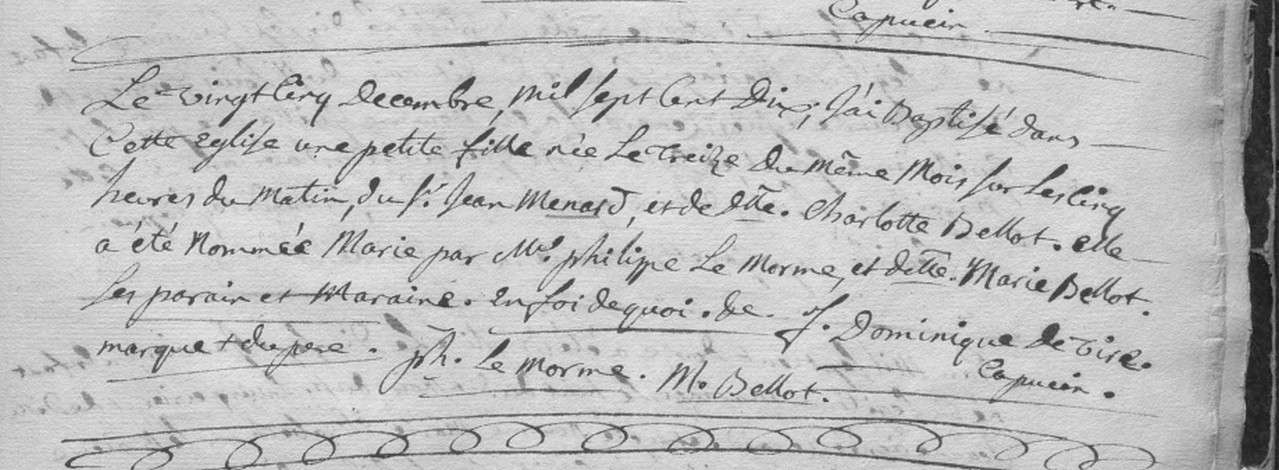 Capucin
Le vingt Cinq Decembre, mil sept Cent Dix; J'ai Baptisé dans
Cette Eglise une petite fille née Le treize Du même Mois sur Les Cinq
heures du Matin, du Sr. Jean Menard, et de dlle. Charlotte Bellot. elle
a été Nommée Marie par Mr. philippe Le Morme, et dlle. Marie Bellot.
Ses parain et Maraine. En foi de quoi. de. f. Dominique de vire.
marque + du pere. ph. Le Morme. M. Bellot. Capucin.